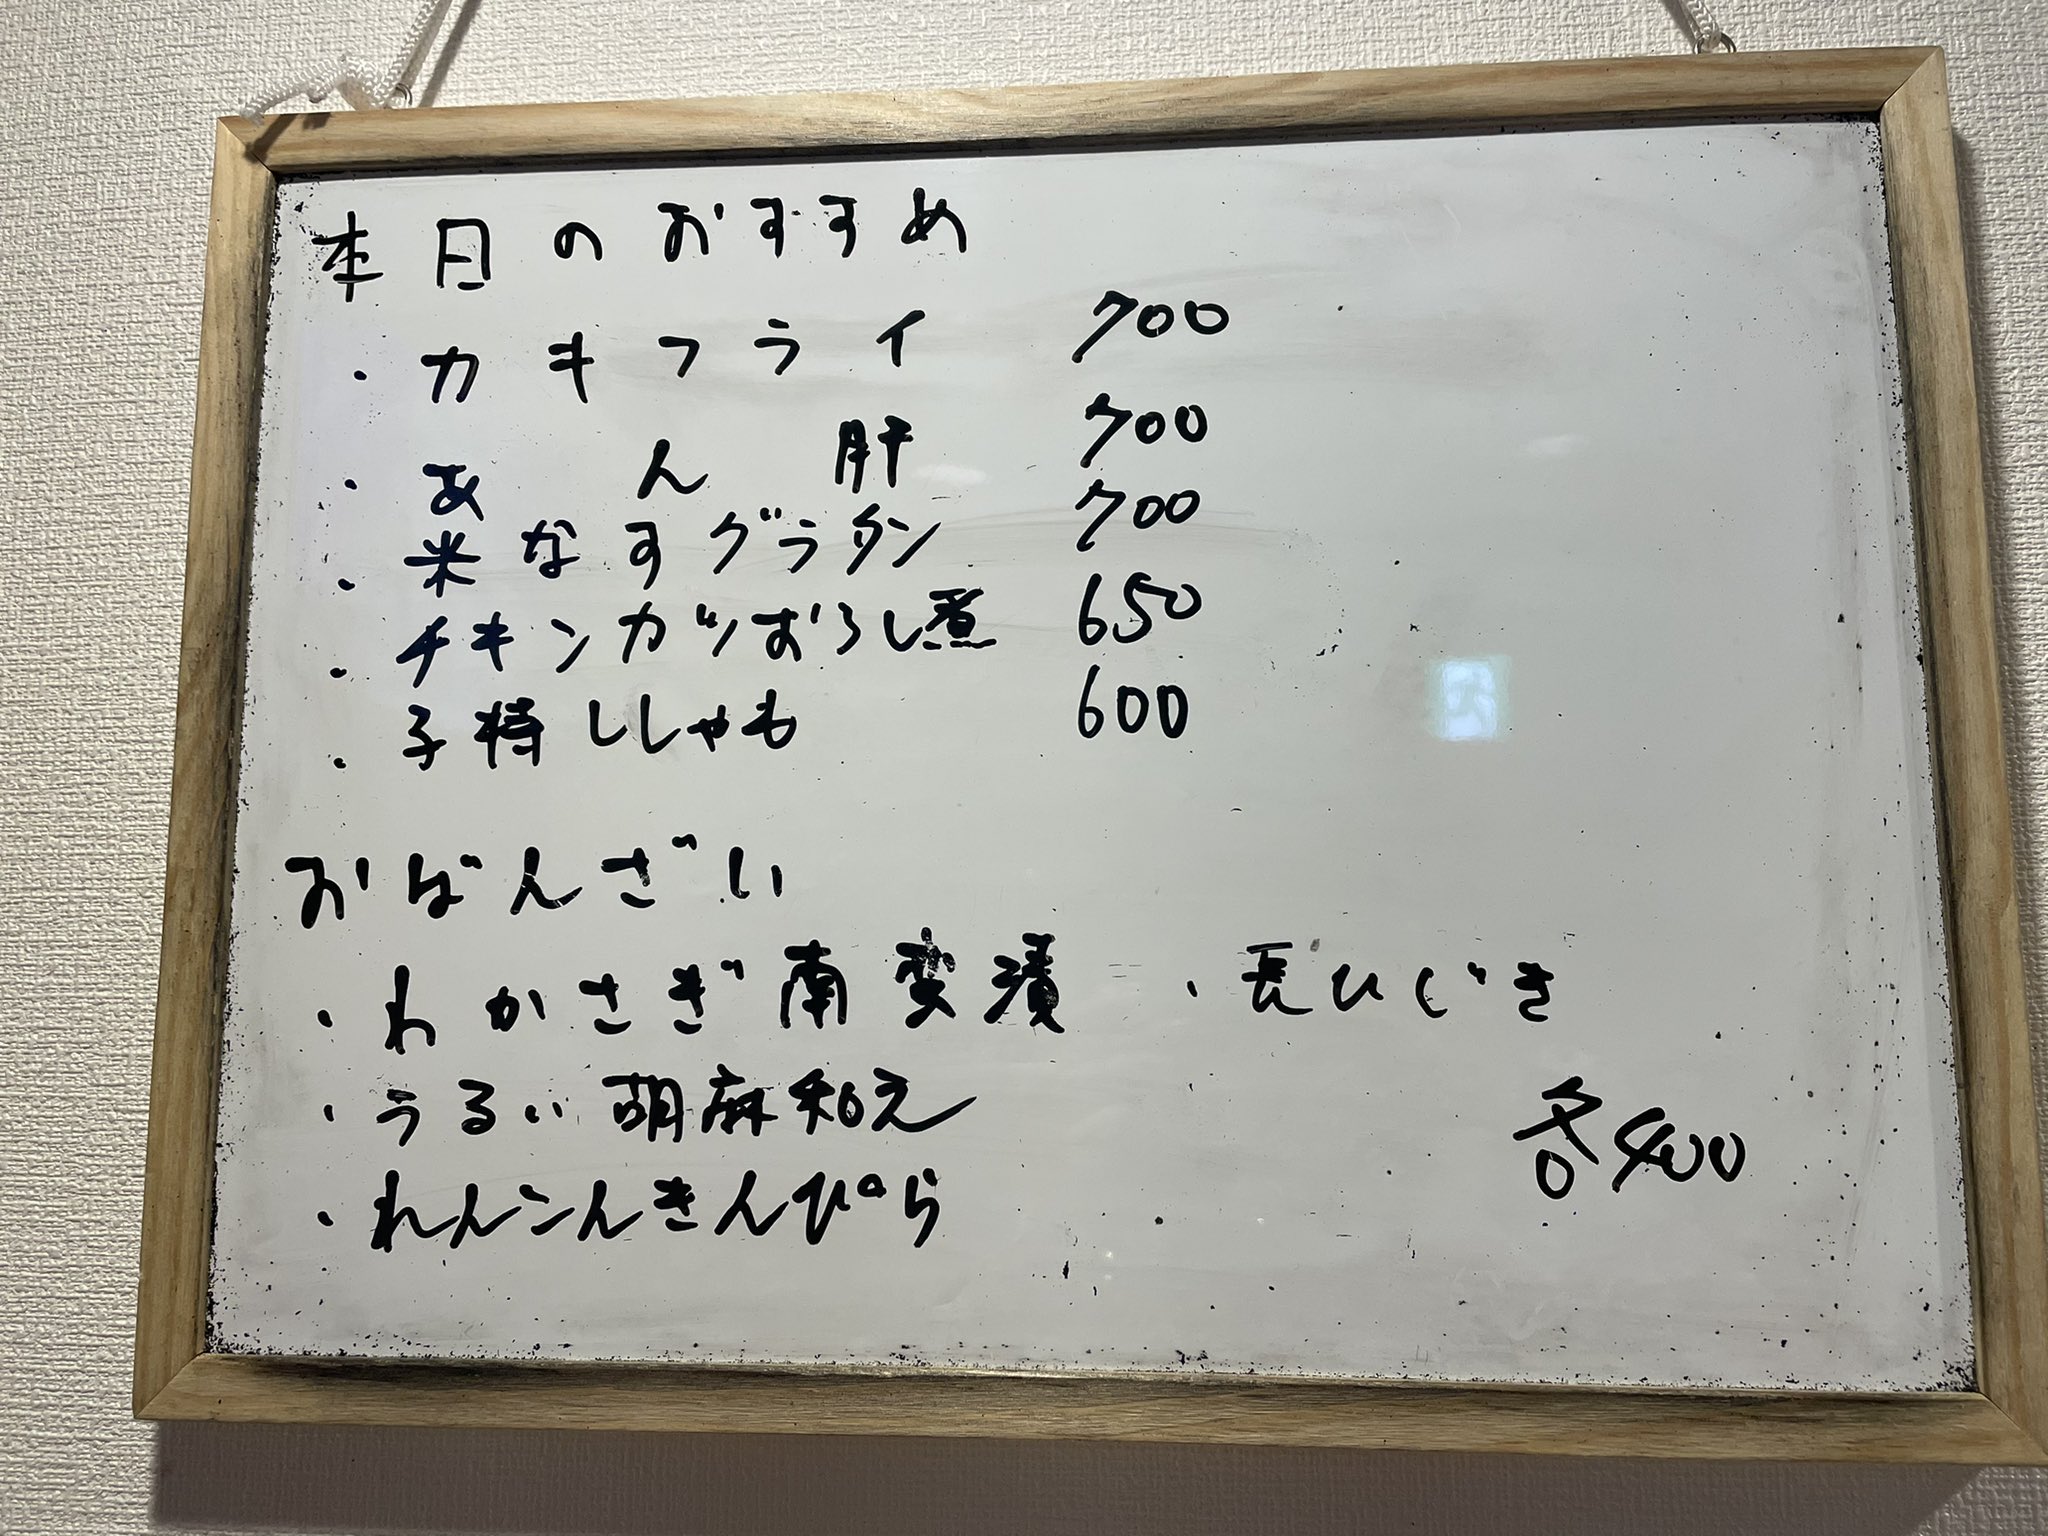 本日のおすすめ
・カキフライ 700
・あん肝 700
・米なすグラタン 700
・チキンカツおろし煮 650
・子持ししゃも 600
おばんざい
・わかさぎ南蛮漬 ・長ひじき
・うるい胡麻和え
各400
・れんこんきんぴら